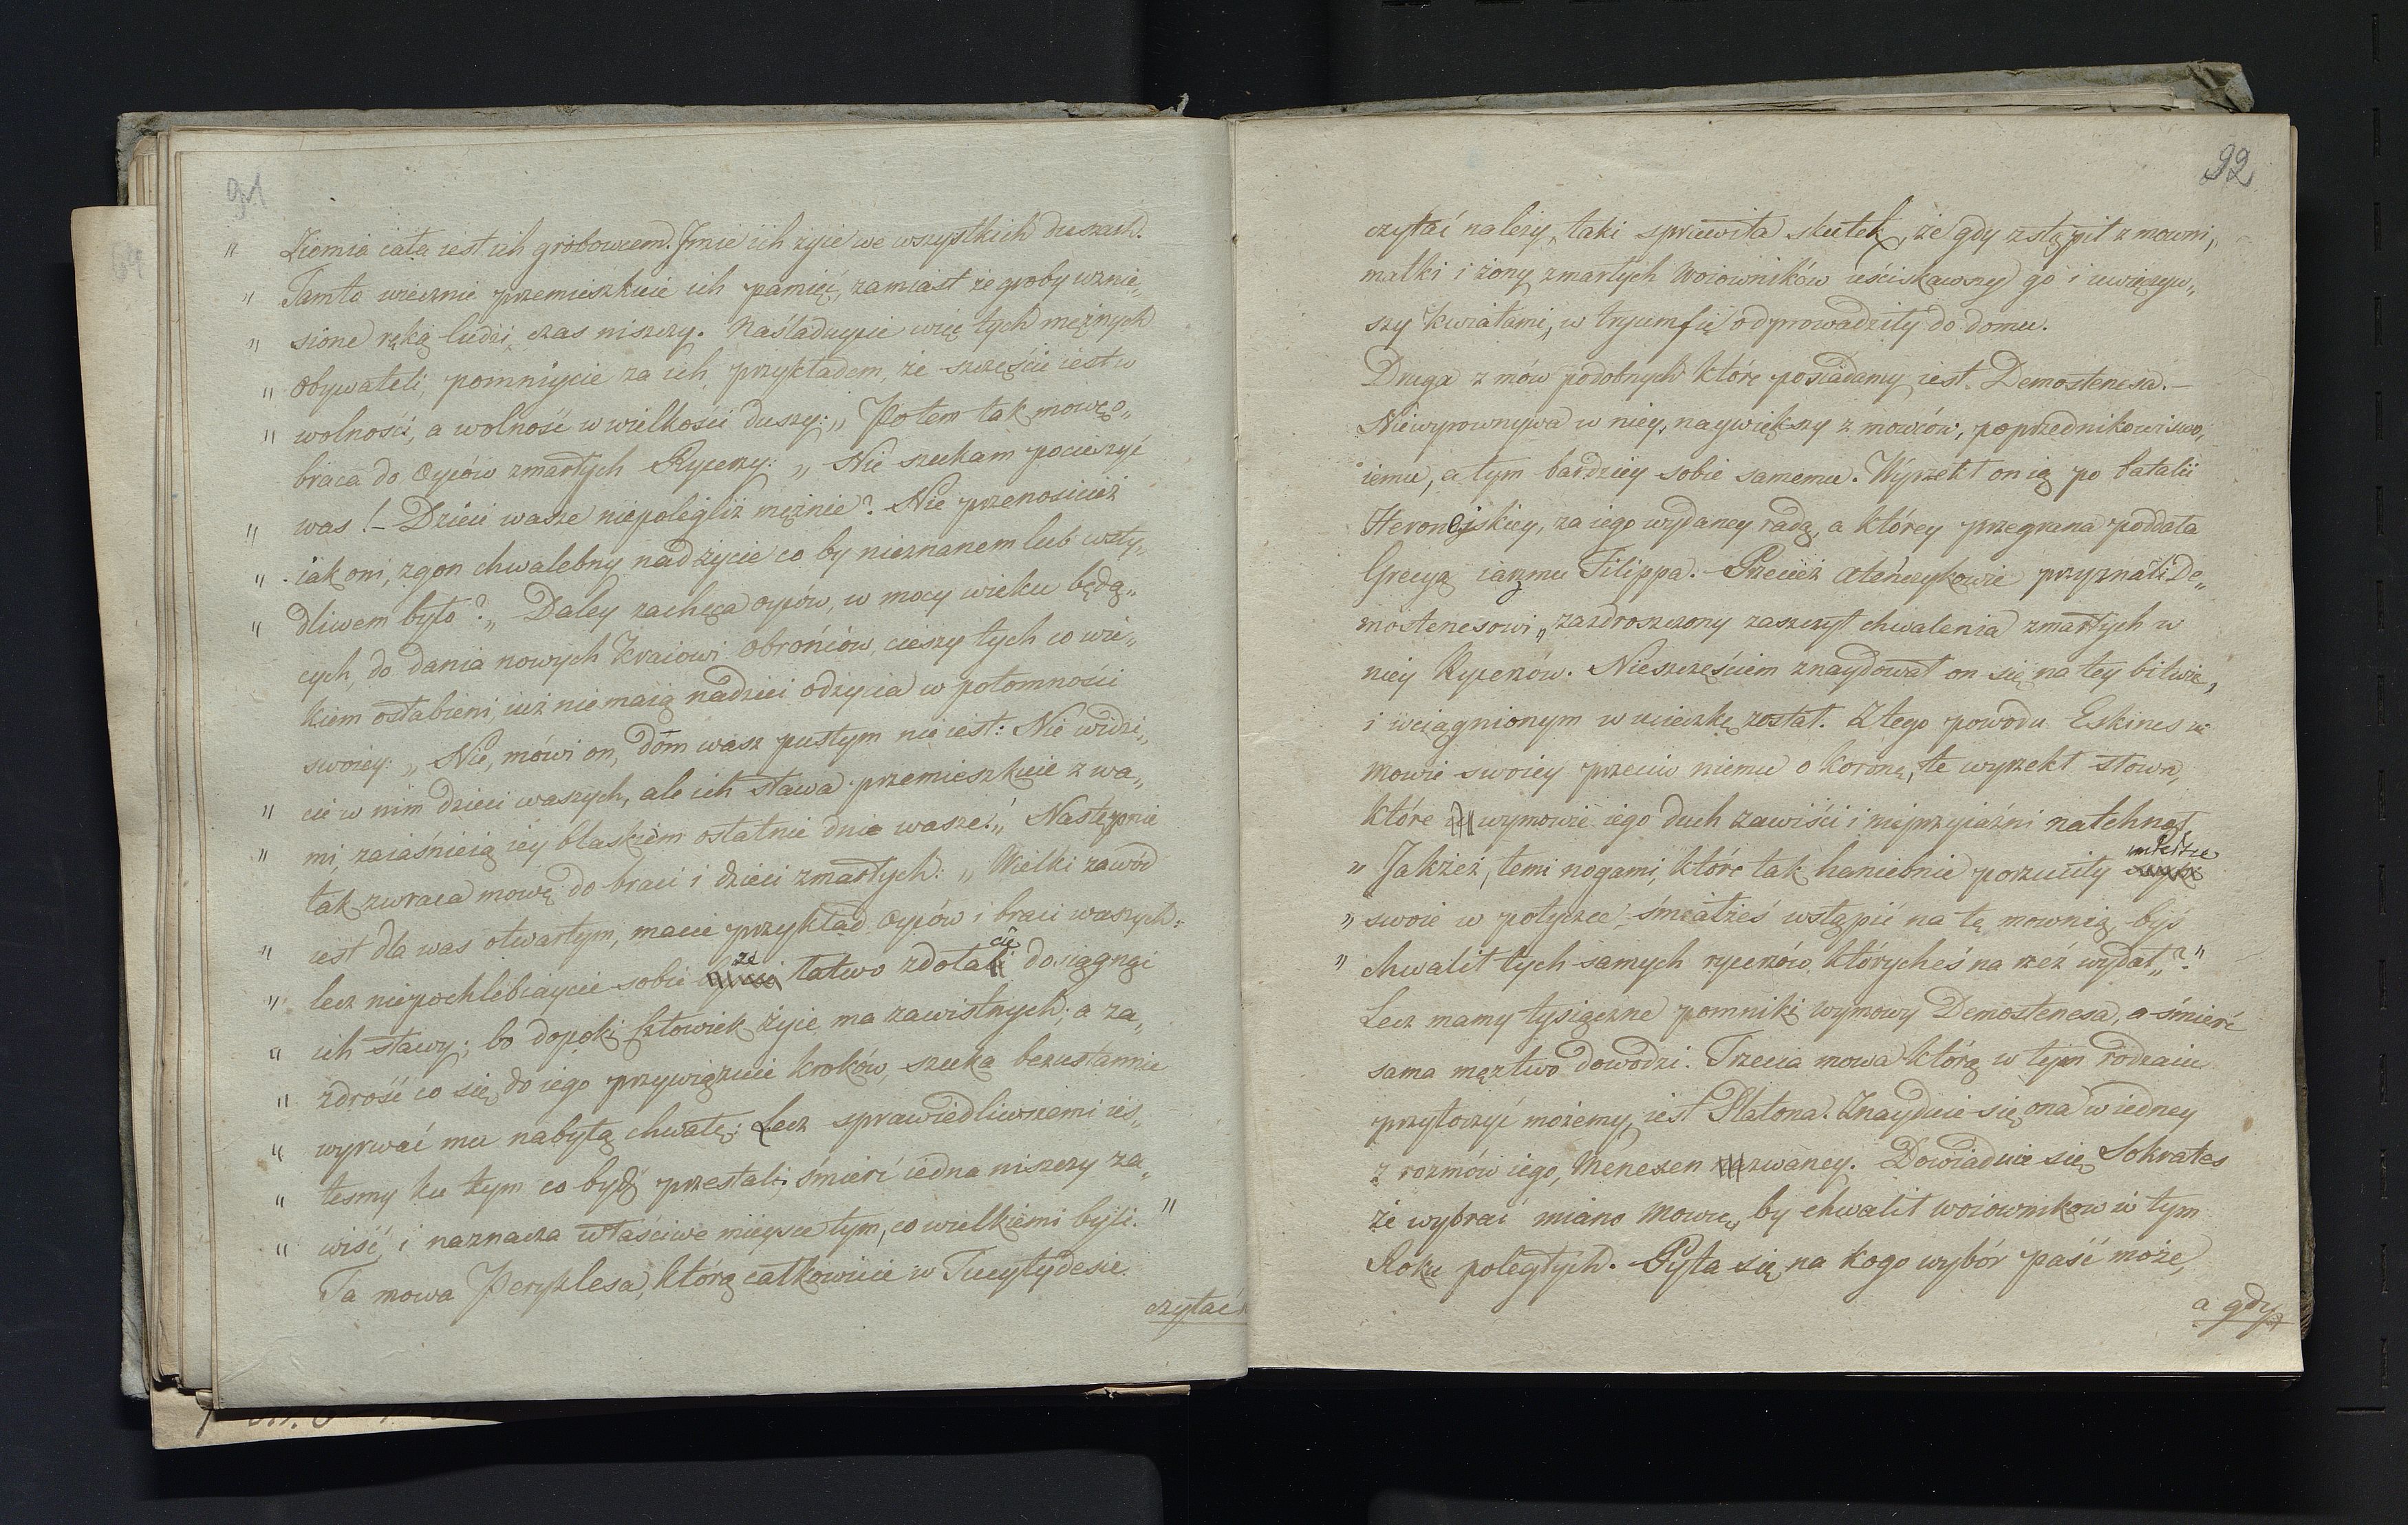 91
" Ziemia cała iest ich grobowcem. Jmie ich żyie we wszystkich duszach.
" Tamto wiecznie przemieszkuie ich pamięć, zamiast że groby wznie„
" sione ręką ludzi, czas niszczy. Naśladuycie więc tych mężnych
" Obywateli, pomniycie za ich przykładem, że szczęście iest w
" wolności, a wolność w wielkości duszy:„ Potem tak mowę o„
braca do Oyców zmarłych Rycerzy: „ Nie szukam pocieszyć
" was! – Dzieci wasze niepolegliż mężnie? Nie przenosicież
" iak oni, zgon chwalebny nad życie co by nieznanem lub wsty„
" dliwem było?„ Daley zachęca oyców, w mocy wieku będą„
cych, do dania nowych Kraiowi Obrońców, cieszy tych co wie„
kiem osłabieni, iuż nie maią nadziei odżycia w potomności
swoiey: „ Nie, mówi on, dóm wasz pustym nie iest: Nie widzi„
" cie w nim dzieci waszych, ale ich sława przemieszkuie z wa„
" mi, zaiaśnieią iey blaskiem ostatnie dnie wasze!„ Następnie
tak zwraca mowę do braci i dzieci zmarłych: „ Wielki zawód
" iest dla was otwartym, macie przykład Oyców i braci waszych:
" lecz niepochlebiaycie sobie że łatwo zdołacie dosiągnąć
" ich sławy; bo dopoki człowiek żyie ma zawistnych; a za„
" zdrość co się do iego przywiązuie kroków, szuka bezustannie
" wyrwać mu nabytą chwałę: Lecz sprawiedliwszemi ies„
" teśmy ku tym co bydź przestali, śmierć iedna niszczy za„
" wiść, i naznacza właściwe mieysce tym, co wielkiemi byli. "
Ta mowa Peryklesa, którą całkowicie w Tucytydesie
czytać
92
czytać należy, taki sprawiła skutek, że gdy zstąpił z mowni„
matki i żony zmarłych Woiowników uściskawszy go i uwięczyw„
szy kwiatami, w tryumfie odprowadziły do domu.
Druga z mów podobnych które posiadamy iest Demostenesa. –
Niewyrownywa w niey, naywiększy z mowców, poprzednikowi swo„
iemu, a tym bardziey sobie samemu. Wyrzekł on ią po batalii
Heroneyskiey, za iego wydaney radą, a którey przegrana poddała
Grecyą iarzmu Filippa. Przecież Ateńczykowie przyznali De„
mostenesowi, zazdroszczony zaszczyt chwalenia zmarłych w
niey Rycerzów. Nieszczęściem znaydował on się na tey bitwie,
i wciągnionym w ucieczkę został. Z tego powodu Eskines w
mowie swoiey przeciw niemu o koronę, te wyrzekł słowa,
które wymowie iego duch zawiści i nieprzyiaźni natchnął
" Jakżeż, temi nogami, które tak haniebnie porzuciły mieysce
" swoie w potyczce, śmiałżeś wstąpić na tę mownią, byś
" chwalił tych samych rycerzów, którycheś na rzeź wydał„?"
Lecz mamy tysiączne pomniki wymowy Demostenesa, a śmierć
sama męztwo dowodzi. Trzecia mowa którą w tym rodzaiu
przytoczyć możemy, iest Platona. Znayduie się ona w iedney
z rozmów iego, Menexen zwaney. Dowiaduie się Sokrates
że wybrać miano Mowcę, by chwalił woiownikow w tym
Roku poległych. Pyta się na kogo wybór paść może,
a gdy